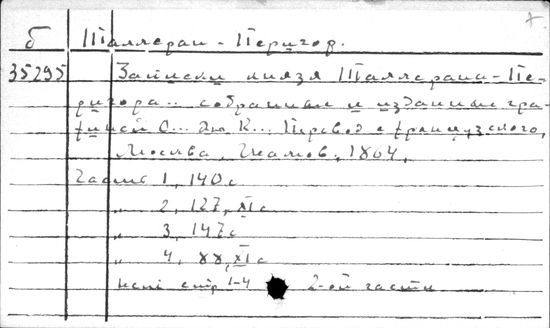 б Таллеран-Перигор.
35295 Записки князя Таллерана-Пе-
ригора.. собранные и изданные гра-
финей О... дю К... Перевод с французского,
Москва, 1864,
Части 1, 140 с
" 2, 127, XI с
" 3, 147 с
" 4, 88, XI с
нет стр 1-4 2-ой части